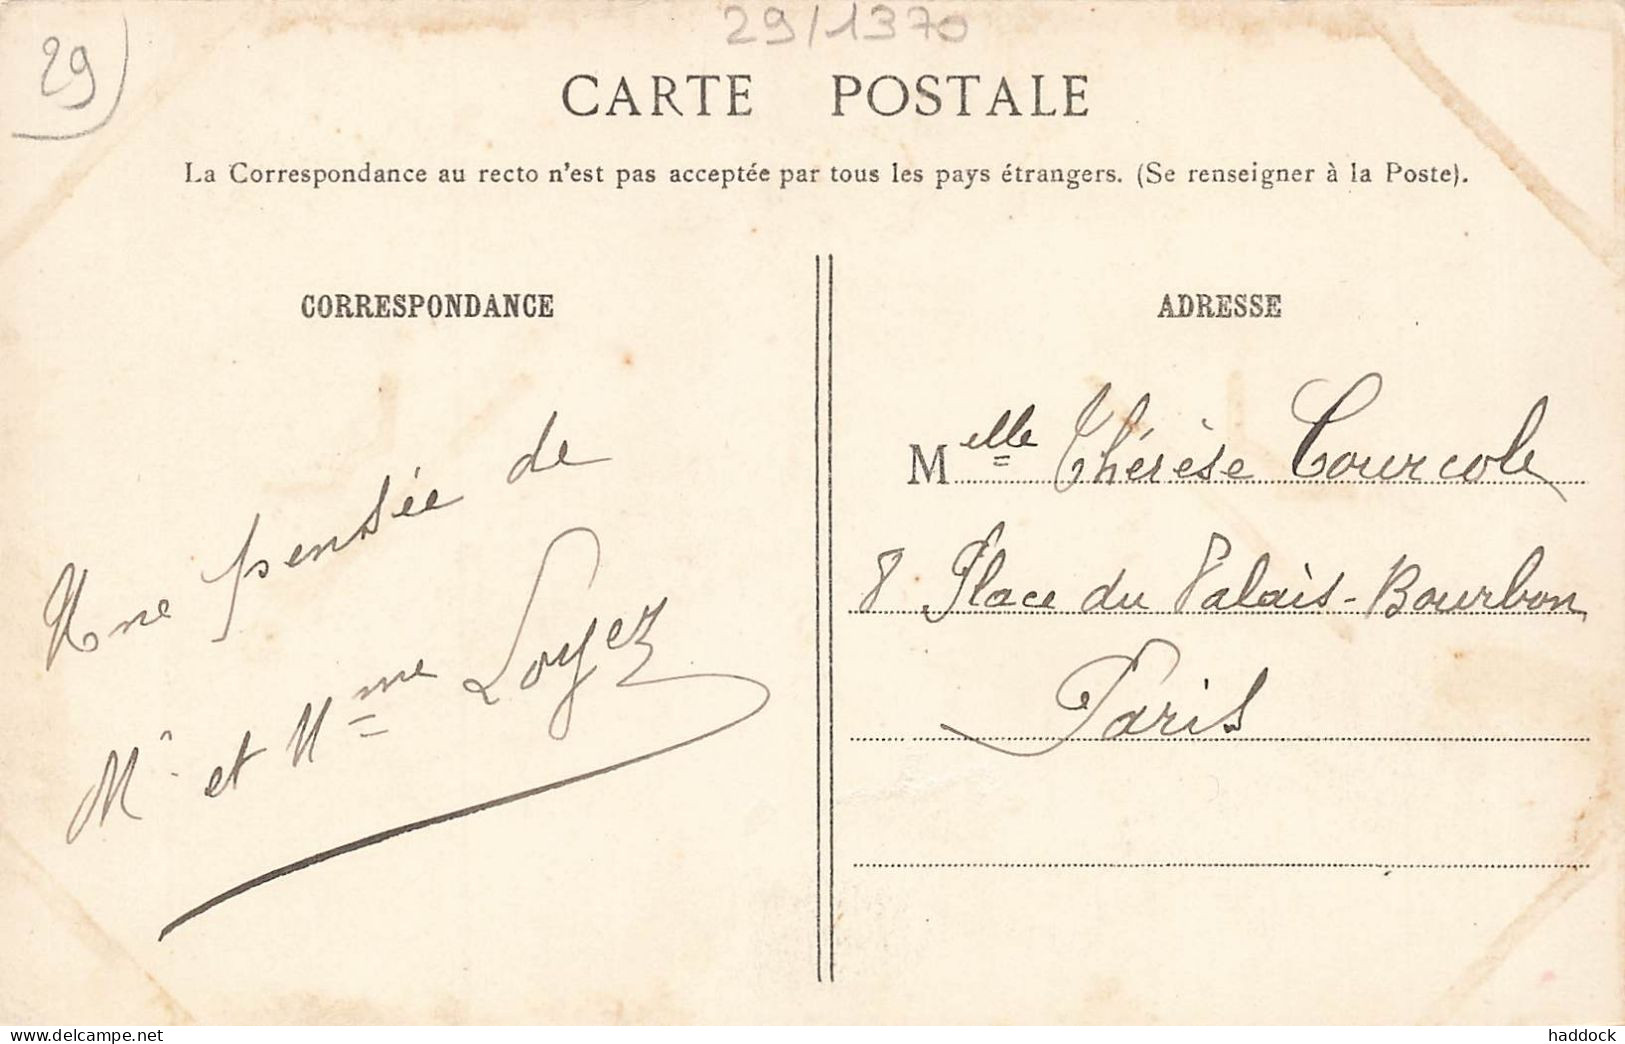 29/1370
29
CARTE POSTALE
La Correspondance au recto n'est pas acceptée par tous les pays étrangers. (Se renseigner à la Poste).
CORRESPONDANCE
Une pensée de
Mr et Mme Loyez
ADRESSE
Melle Thérèse Courcole
8 Place du Palais-Bourbon
Paris
https://www.delcampe.net
haddock